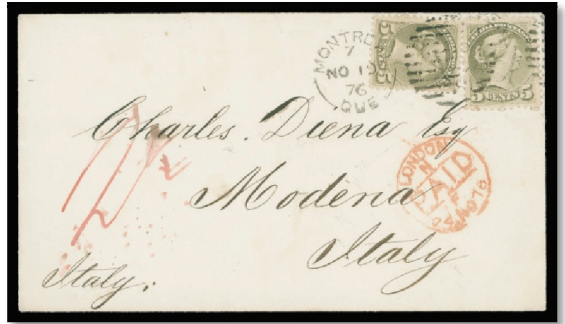 MONTRE
7
NO 19
76
QUE
5 CENTS 5
Charles. Diena Esq
Modena
Italy
Italy.
LONDON
PAID
24 NO 76